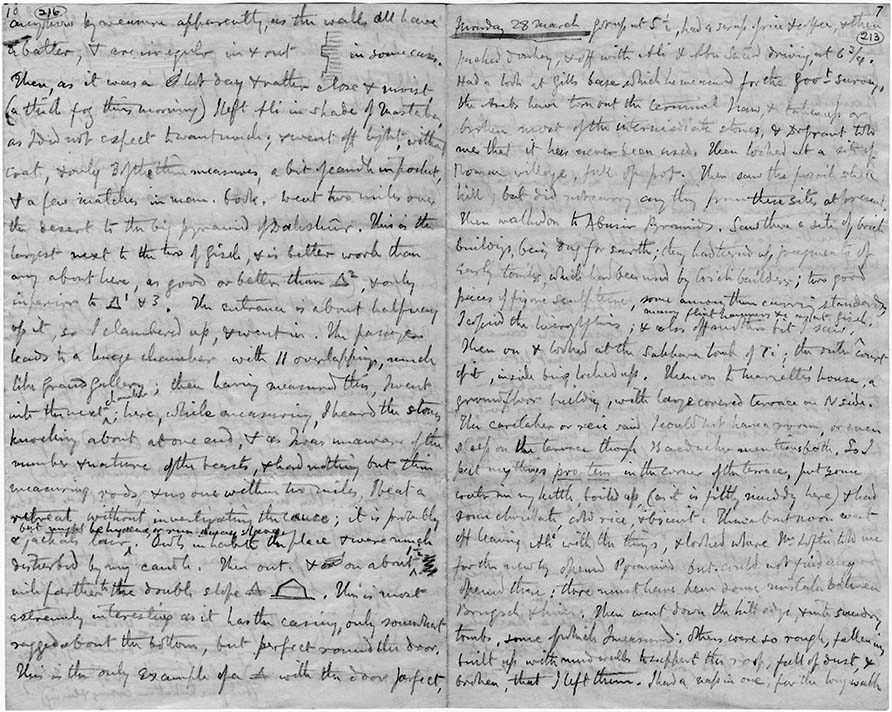 10 216
anyhow by measure apparently, as the walls all have
a batter, & are irregular in & out in some cases.
Then, as it was a hot day & rather close & moist
(a thick fog this morning) I left Ali in shade of Mastaba
as I did not expect to want much; & went off light, without
coat, & only 3 of the thin measures, a bit of candle in pocket,
& a few matches in mem. book. Went two miles over
the desert to the big pyramid of Dahshur. This is the
largest next to the two of Gizeh, & is better work than
any about here, as good or better than Δ 2, & only
inferior to Δ 1 & 3. The entrance is about halfway
up it, so I clambered up, & went in. The passage
leads to a large chamber with 11 overlapping, much
like Grand Gallery; then having measured this, I went
into the next chamber; here, while measuring, I heard the stones
knocking about, at one end, & as I was unaware of the
number & nature of the beasts, & had nothing but thin
measuring rods & no one within two miles, I beat a
retreat, without investigating the cause; it is probably
but might be hyaena
a jackal's lair. Owls inhabit the place & were much
disturbed by my candle. Then out, & on about 1/2
mile farther to the double slope. This is most
extremely interesting as it has the casing, only somewhat
ragged about the bottom, but perfect round the door.
This is the only example of a Δ with the door perfect,
7
213
Monday 28 March got up at 5 1/2, had a scrap of rice & coffee, & then
packed donkey, & off with Ali & Abu Saud driving, at 6 3/4.
Had a look at Gill's base which he measured for the Govt. survey,
the Arabs have torn out the terminal & taken up or
broken most of the intermediate stones, & Dr Grant told
me that it has never been used. Then looked at a site of
Roman village, full of pot. Then saw the fossil shell
hill, but did not carry any thing from these sites at present.
Then walked on to Abusir Pyramids. Saw there a site of brick
buildings, being dug for earth; they had turned up fragments of
early tombs, which had been used by brick builders; two good
pieces of figure sculpture, some among them carrying standards,
many flint hammers &c as at Gizeh.
I copied the hieroglyphics; & also off another bit I saw.
Then on & looked at the Sakkara tomb of Ti; the outer court
of it, inside being locked up. Then on to Mariette's house, a
ground floor building, with large covered terrace on N side.
The caretaker or reis said I could not have a room, or even
sleep on the terrace though Baedecker mentions both. So I
put my things pro tem in the corner of the terrace, put some
water in my kettle, boiled up (as it is filthy, muddy here) & had
some chocolate, cold rice, & biscuit. Then about noon went
off leaving Ali with the things, & looked where Mr Loftie told me
for the newly opened Pyramid but could not find any
opened there; there must have been some mistake between
Brugsch & him. Then went down the hill edge, & into sundry
tombs, some of which I measured; others were so rough, fallen in,
built up with mud walls to support the roof, full of dust, &
broken, that I left them. I had a nap in one, for the long walk